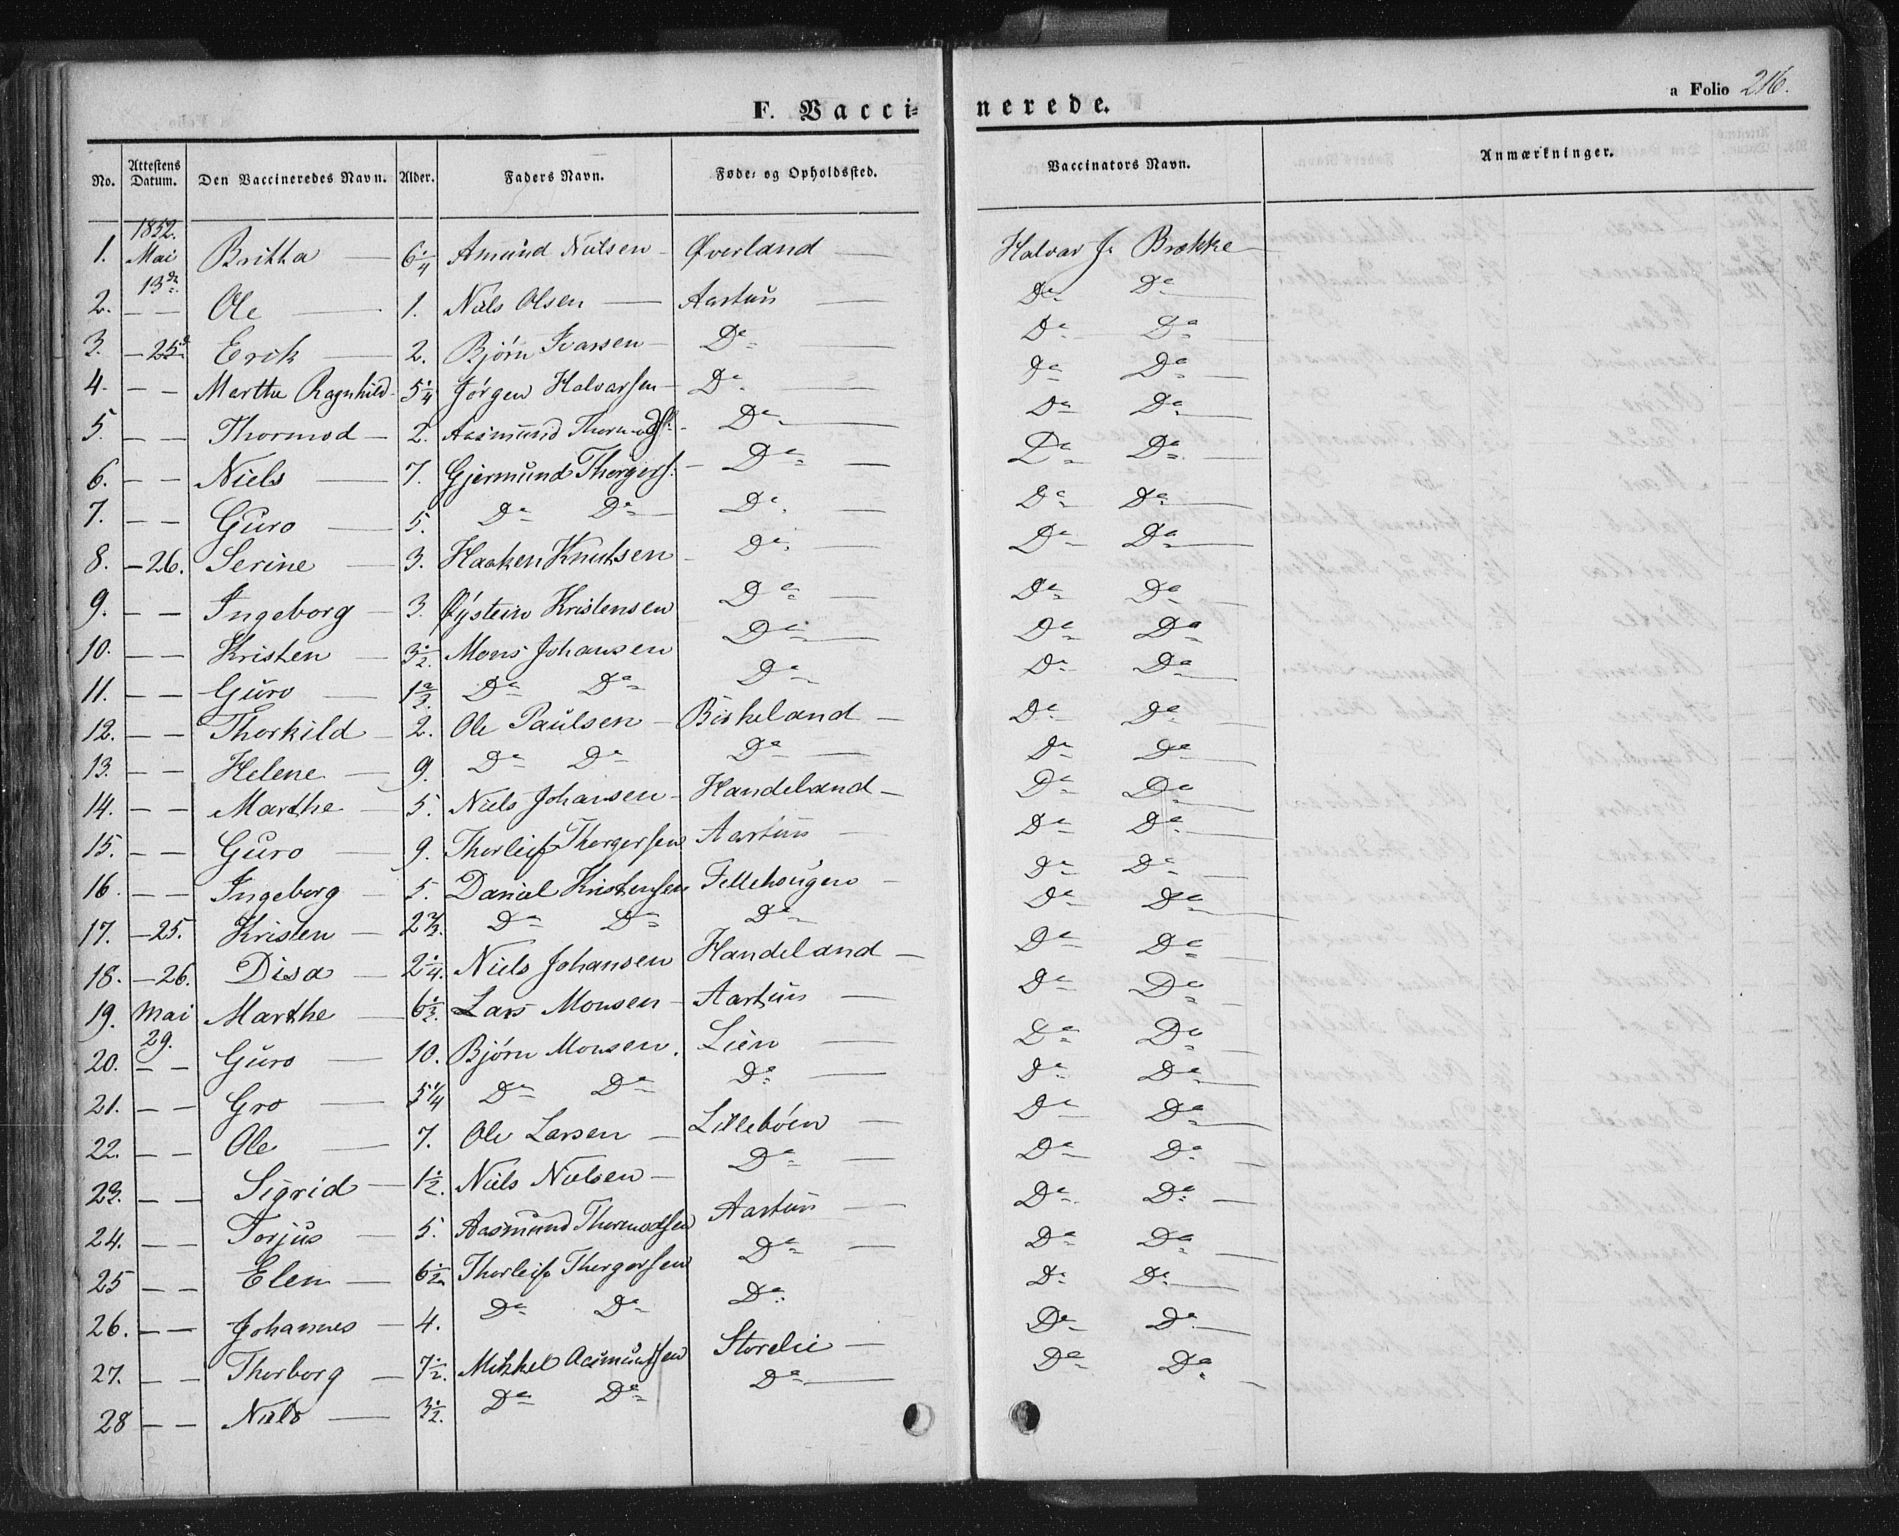 F. Vaccinerede.
a Folio 216.
No. Attestens Datum. Den Vaccineredes Navn. Alder. Faders Navn. Føde- og Opholdssted. Vaccinators Navn. Anmærkninger.
1852.
1. Mai 13de Britha 6 1/4 Amund Nielsen Øverland Halvar J. Brekke
2. — — Ole 1. Niels Olsen Aartun Do Do
3. — 25d Erik 2. Bjørn Ivarsen Do Do Do
4. — — Marthe Ragnhild 5 1/4 Jørgen Halvarsen Do Do Do
5. — — Thormod 2. Aasmund Thormods. Do Do Do
6. — — Niels 7. Gjermund Thorgers. Do Do Do
7. — — Guro 5. Do Do Do Do Do
8. — 26. Serine 3. Haaken Knutsen Do Do Do
9. — — Ingeborg 3. Øystein Kristensen Do Do Do
10. — — Kristen 3 1/2 Mons Johansen Do Do Do
11. — — Guro 1 2/3 Do Do Do Do Do
12. — — Thorkild 2. Ole Paulsen Birkeland Do Do
13. — — Helene 9. Do Do Do Do Do
14. — — Marthe 5. Niels Johansen Handeland Do Do
15. — — Guro 9. Thorleif Thorgersen Aartun Do Do
16. — — Ingeborg 5. Danial Kristensen Fellehougen Do Do
17. — 25. Kristen 2 2/3. Do Do Do Do Do
18. — 26. Disa 2 1/4. Niels Johansen Handeland Do Do
19. Mai 29. Marthe 6 1/2. Lars Monsen Aartun Do Do
20. — — Guro 10. Bjørn Monsen. Lien Do Do
21. — — Gro 5 1/4 Do Do Do Do Do
22. — — Ole 7. Ole Larsen Lillebøen Do Do
23. — — Sigrid 1 1/2. Niels Nielsen Do Do Do
24. — — Torjus 5. Aasmund Thormodsen Aartun Do Do
25 — — Elen 6 1/2 Thorleif Thorgersen Do Do Do
26. — — Johannes 4. Do Do Do Do Do
27. — — Thorborg 7 1/2. Mikkel Aamundsen Storelie Do Do
28 — — Niels 3 1/2. Do Do Do Do Do